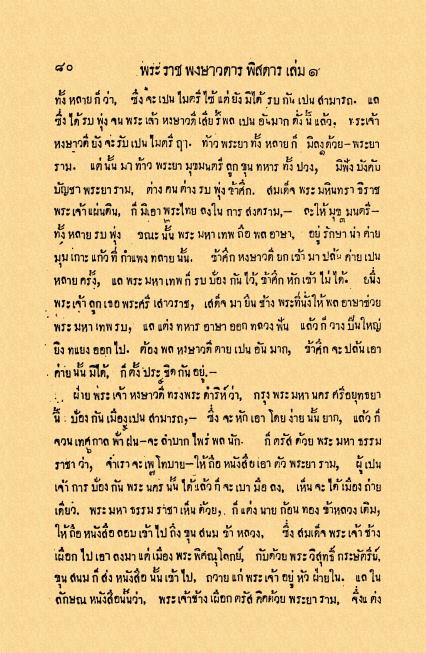 ๘๐ พระ ราช พงษาวดาร พิสดาร เล่ม ๑
ทั้ง หลาย ก็ ว่า, ซึ่ง จะ เปน ไมตรี ไซ้ แต่ ยัง มิได้ รบ กัน เปน สามารถ. แล
ซึ่ง ได้ รบ พุ่ง จน พระ เจ้า หงษาวดี เสีย รี้ พล เปน อัน มาก ดั่ง นี้ แล้ว, พระเจ้า
หงษาวดี ยัง จะ รับ เปน ไมตรี ฤา. ท้าว พระยา ทั้ง หลาย ก็ มิลง ด้วย–พระยา
ราม. แต่ นั้น มา ท้าว พระยา มุขมนตรี ลูก ขุน ทหาร ทั้ง ปวง, มิฟัง บังคับ
บัญชา พระยา ราม, ต่าง คน ต่าง รบ พุ่ง ข้าศึก. สมเด็จ พระ มหินทรา ธิราช
พระ เจ้าแผ่นดิน, ก็ มิเอา พระไทย ลงใน การ สงคราม,– ละให้ มุข มนตรี–
ทั้ง หลาย รบ พุ่ง ขณะ นั้น พระ มหา เทพ ถือ พล อาษา, อยู่ รักษา น่า ค่าย
มุม เกาะ แก้ว ที่ กำแพง ทลาย นั้น. ข้าศึก หงษาวดี ยก เข้า มา ปล้น ค่าย เปน
หลาย ครั้ง, แล พระ มหา เทพ ก็ รบ ป้อง กัน ไว้, ข้าศึก หัก เข้า ไม่ ได้. อนึ่ง
พระเจ้า ลูก เธอ พระศรี เสาวราช, เสด็จ มา ยืน ช้าง พระที่นั่ง ให้ พล อาษา ช่วย
พระ มหา เทพ รบ, แล แต่ง ทหาร อาษา ออก ทลวง ฟัน แล้ว ก็ วาง ปืนใหญ่
ยิง แทยง ออก ไป. ต้อง พล หงษาวดี ตาย เปน อัน มาก, ข้าศึก จะ ปล้น เอา
ค่าย นั้น มิได้, ก็ ตั้ง ประชิด กัน อยู่.–
ฝ่าย พระ เจ้า หงษาวดี ทรงพระ ดำริห์ ว่า, กรุง พระ มหา นคร ศรีอยุทธยา
นี้ ป้อง กัน เมือง เปน สามารถ,– ซึ่ง จะ หัก เอา โดย ง่าย นั้น ยาก, แล้ว ก็
จวน เทศกาล ฟ้า ฝน–จะ ลำบาก ไพร่ พล นัก. ก็ ตรัส ด้วย พระ มหา ธรรม
ราชา ว่า, จำเรา จะ เพทุบาย–ให้ ถือ หนังสือ เอา ตัว พระยา ราม, ผู้ เปน
เจ้า การ ป้อง กัน พระ นคร นั้น ได้ แล้ว ก็ จะ เบา มือ ลง, เห็น จะ ได้ เมือง ถ่าย
เดียว. พระ มหา ธรรม ราชา เห็น ด้วย,. ก็ แต่ง นาย ก้อน ทอง ข้าหลวง เดิม,
ให้ ถือ หนังสือ ลอบ เข้า ไป ถึง ขุน สนม ข้า หลวง, ซึ่ง สมเด็จ พระ เจ้า ช้าง
เผือก ไป เอา ลงมา แต่ เมือง พระ พิศณุโลกย์, กับด้วย พระ วิสุทธิ์ กระษัตรีย์,
ขุน สนม ก็ ส่ง หนังสือ นั้น เข้า ไป, ถวาย แก่ พระ เจ้า อยู่ หัว ฝ่ายใน. แล ใน
ลักษณ หนังสือ นั้น ว่า, พระ เจ้าช้าง เผือก ตรัส คิด ด้วย พระยา ราม, จึ่ง แต่ง